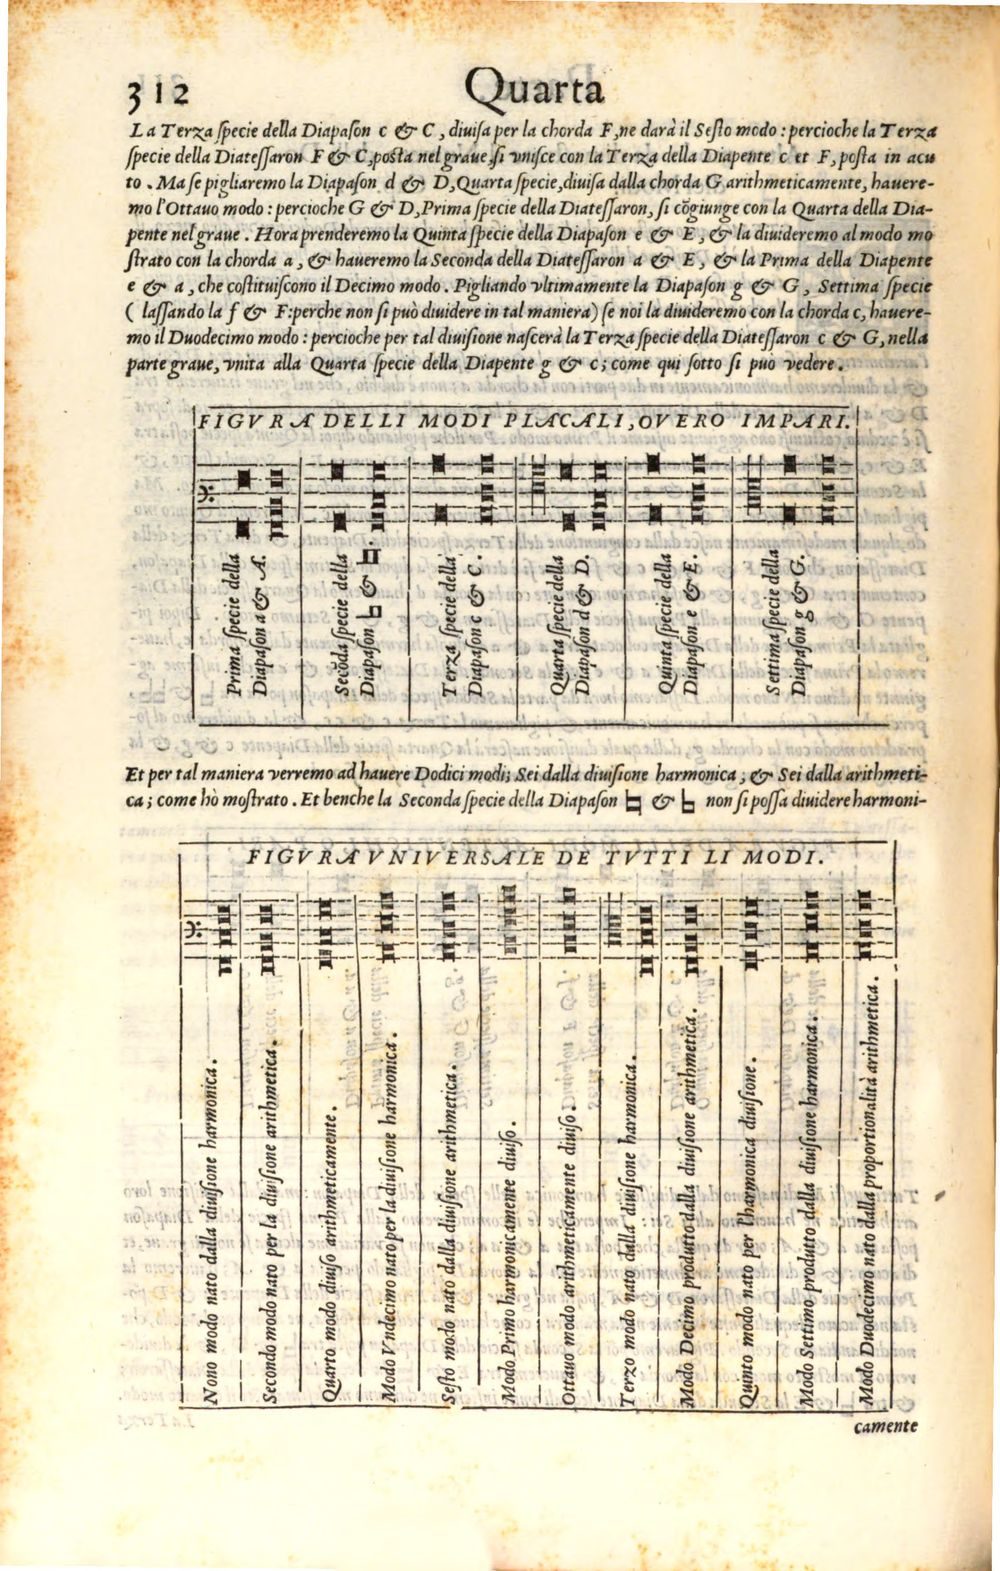 312 Quarta
La Terza ſpecie della Diapaſon c & C, diuiſa per la chorda F, ne darà il Seſto modo: percioche la Terza
ſpecie della Diateſſaron F & C, poſta nel graue, ſi vniſce con la Terza della Diapente c et F, poſta in acu
to. Ma ſe pigliaremo la Diapaſon d & D, Quarta ſpecie, diuiſa dalla chorda G arithmeticamente, haueremo-
mo l'Ottauo modo: percioche G & D, Prima ſpecie della Diateſſaron, ſi cõgiunge con la Quarta della Dia-
pente nel graue. Hora prenderemo la Quinta ſpecie della Diapaſon e & E, & la diuideremo al modo mo
ſtrato con la chorda a, & haueremo la Seconda della Diateſſaron a & E, & la Prima della Diapente
e & a, che coſtituiſcono il Decimo modo. Pigliando vltimamente la Diapaſon g & G, Settima ſpecie
( laſſando la f & F: perche non ſi può diuidere in tal maniera) ſe noi la diuideremo con la chorda c, hauere-
mo il Duodecimo modo: percioche per tal diuiſione naſcerà la Terza ſpecie della Diateſſaron c & G, nella
parte graue, vnita alla Quarta ſpecie della Diapente g & c; come qui ſotto ſi può vedere.
FIGVRA DELLI MODI PLACALI, OVERO IMPARI.
Prima ſpecie della
Diapaſon a & A.
Secõda ſpecie della
Diapaſon ♭ & ♮.
Terza ſpecie della
Diapaſon c & C.
Quarta ſpecie della
Diapaſon d & D.
Quinta ſpecie della
Diapaſon e & E.
Settima ſpecie della
Diapaſon g & G.
Et per tal maniera verremo ad hauere Dodici modi; Sei dalla diuiſione harmonica; & Sei dalla arithmeti-
ca; come hò moſtrato. Et benche la Seconda ſpecie della Diapaſon ♮ & ♭ non ſi poſſa diuidere harmoni-
FIGVRA VNIVERSALE DE TVTTI LI MODI.
Nono modo nato dalla diuiſione harmonica.
Secondo modo nato per la diuiſione arithmetica.
Quarto modo diuiſo arithmeticamente.
Modo Vndecimo nato per la diuiſione harmonica.
Seſto modo nato dalla diuiſione arithmetica.
Modo Primo harmonicamente diuiſo.
Ottauo modo arithmeticamente diuiſo.
Terzo modo nato dalla diuiſione harmonica.
Modo Decimo produtto dalla diuiſione arithmetica.
Quinto modo nato per l'harmonica diuiſione.
Modo Settimo, produtto dalla diuiſione harmonica.
Modo Duodecimo nato dalla proportionalità arithmetica.
camente